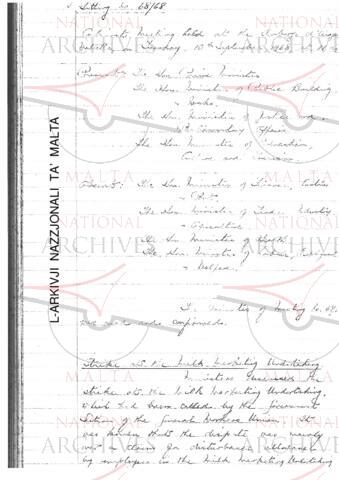 Sitting No. 68/68
Cabinet Meeting held at the
Valletta on Tuesday, 10th September 1968,
Present: The Hon. Prime Minister
The Hon. Minister of Public Building
& Works.
The Hon. Minister of Justice and
Parliamentary Affairs
The Hon. Minister of Education,
Culture and Tourism.
Absent: The Hon. Minister of Finance, Customs
& Port.
The Hon. Minister of Trade, Industry
& Agriculture
The Hon. Minister of Health
The Hon. Minister of Labour,
& Welfare.
The Minutes of Meeting No. 67/
was read and confirmed.
Strike at the Milk Marketing Undertaking
Ministers discussed the
strike at the Milk Marketing Undertaking,
which had been called by the Government
Section of the General Workers Union. It
was known that the dispute was mainly
over claims for disturbance allowance
by employees in the Milk Marketing Undertaking
L-ARKIVJI NAZZJONALI TA' MALTA
NATIONAL
ARCHIVES
MALTA